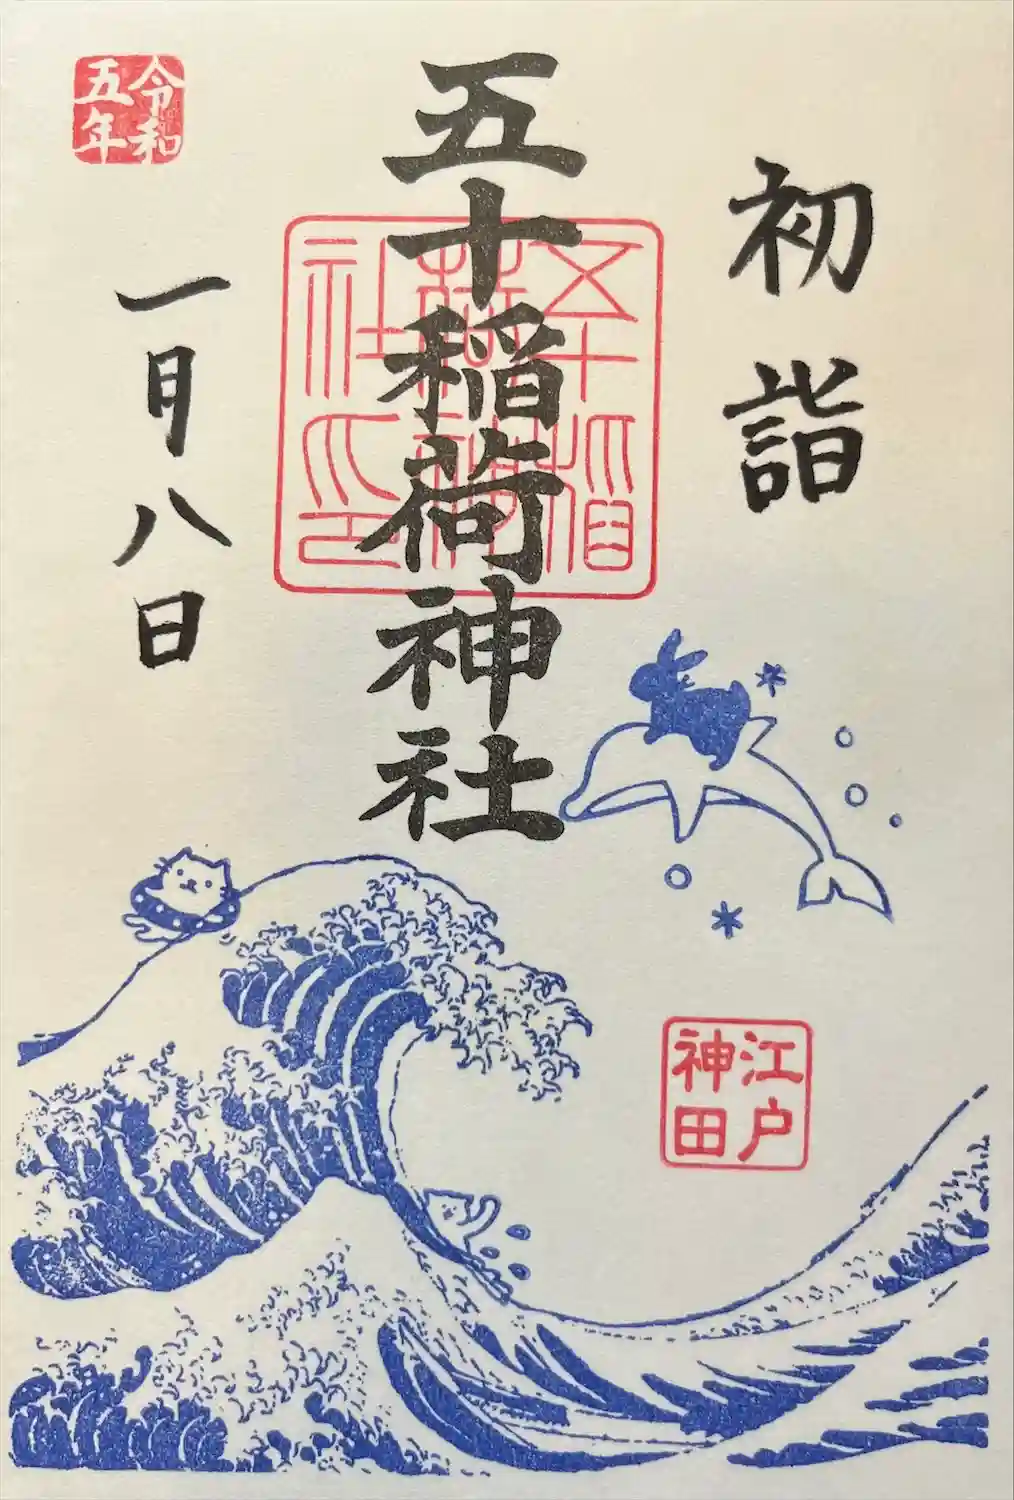 初詣
五十稲荷神社
五十稲荷神社印
令和
五年
一月八日
江戸
神田